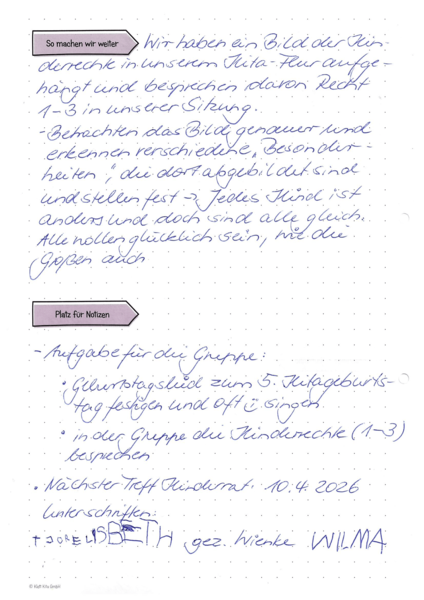 So machen wir weiter
Wir haben ein Bild der Kin-
derrechte in unserem Kita-Flur aufge-
hängt und besprechen davon Recht
1-3 in unserer Sitzung.
- Betrachten das Bild genauer und
erkennen verschiedene "Besonder-
heiten", die dort abgebildet sind
und stellen fest → Jedes Kind ist
anders und doch sind alle gleich.
Alle wollen glücklich sein, wie die
Großen auch
Platz für Notizen
- Aufgabe für die Gruppe:
• Geburtstagslied zum 5. Kitageburts-
tag festigen und oft ☺ singen
• in der Gruppe die Kinderrechte (1-3)
besprechen
• Nächster Treff Kinderrat. 10.4.2026
Unterschriften:
ELISBETH, gez. Wienke WILMA